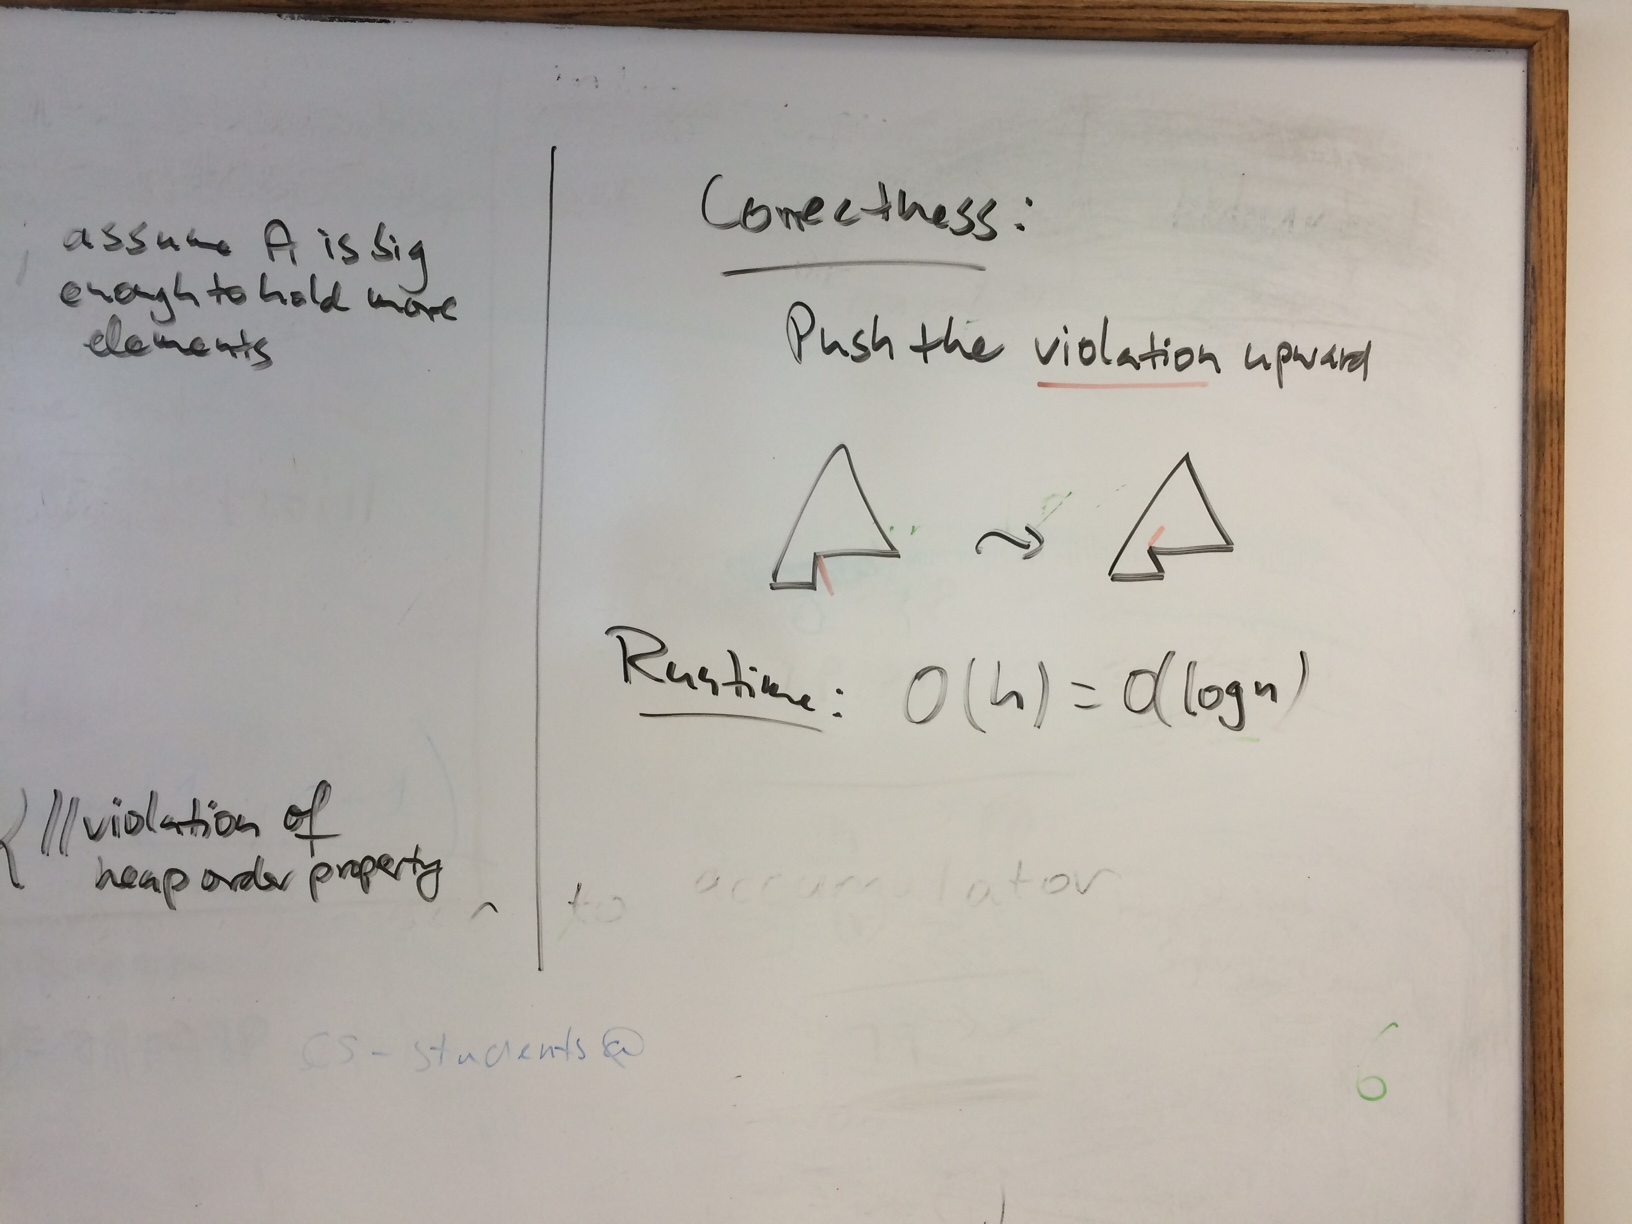 assume A is big
enough to hold more
elements
//violation of
heap order property
Correctness:
Push the violation upward
Runtime: O(h) = O(log n)
to accumulator
CS-students@
6